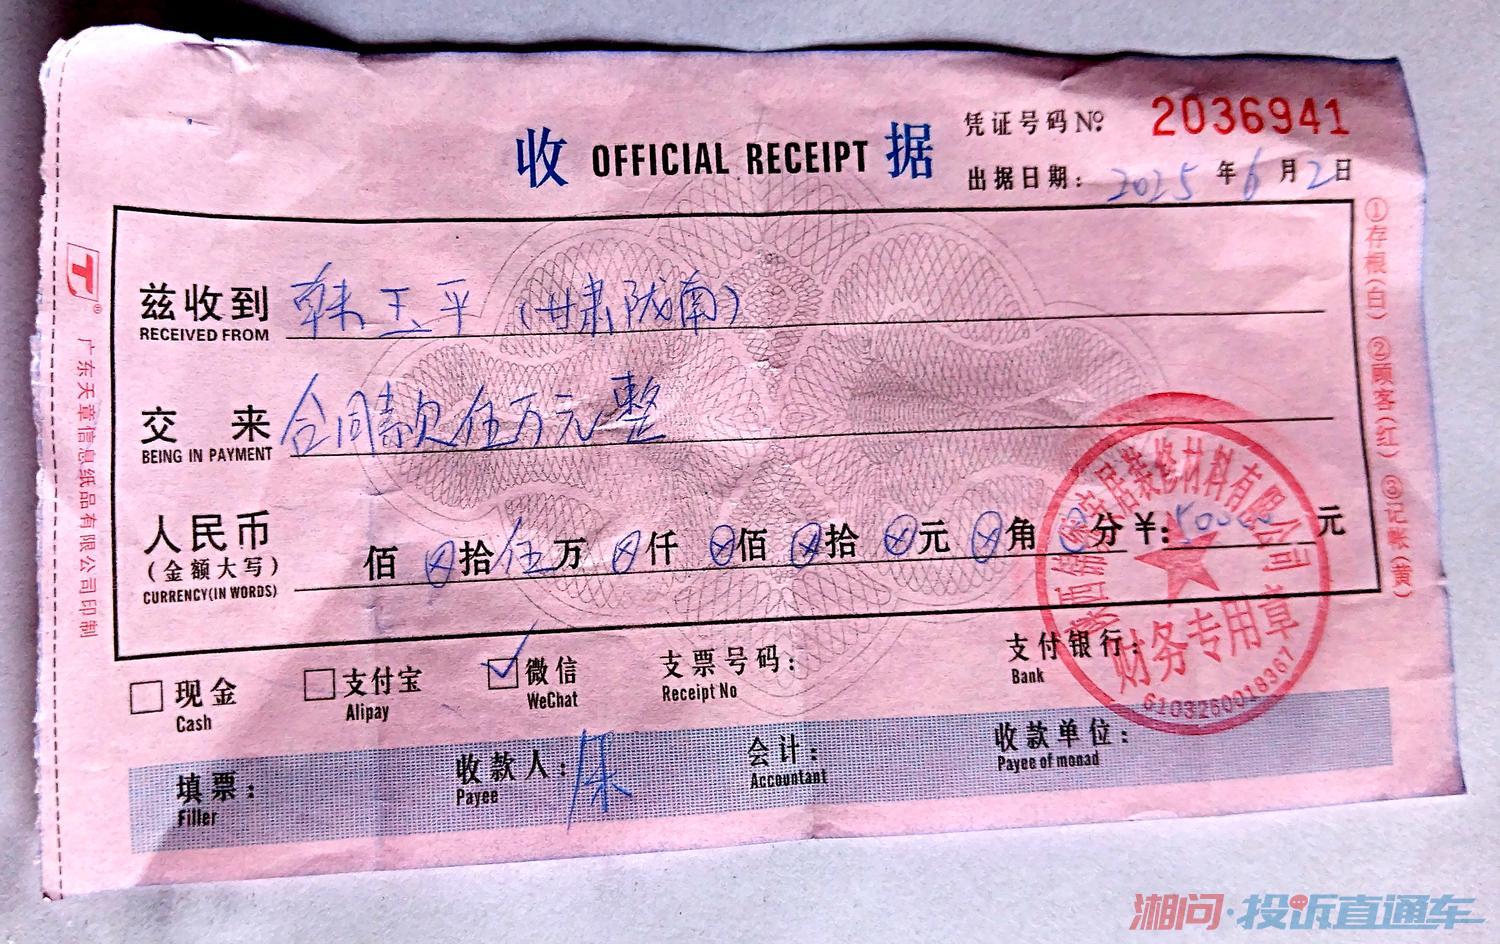 收 OFFICIAL RECEIPT 据
凭证号码 №: 2036941
出据日期: 2025 年 6 月 2 日
兹收到 韩玉平 (甘肃陇南)
RECEIVED FROM
交 来 合同款伍万元整
BEING IN PAYMENT
人民币
(金额大写)
CURRENCY(IN WORDS)
佰 ⊗ 拾 伍 万 ⊗ 仟 ⊗ 佰 ⊗ 拾 ⊗ 元 ⊗ 角 分 ¥: 50000 元
现金
Cash
支付宝
Alipay
☑ 微信
WeChat
支票号码:
Receipt No
支付银行:
Bank
填票:
Filler
收款人: 朱
Payee
会计:
Accountant
收款单位:
Payee of monad
①存根(白) ②顾客(红) ③记帐(黄)
T®
广东天章信息纸品有限公司印制
居装修材料有限公司
财务专用章
6103260018367
湘问·投诉直通车